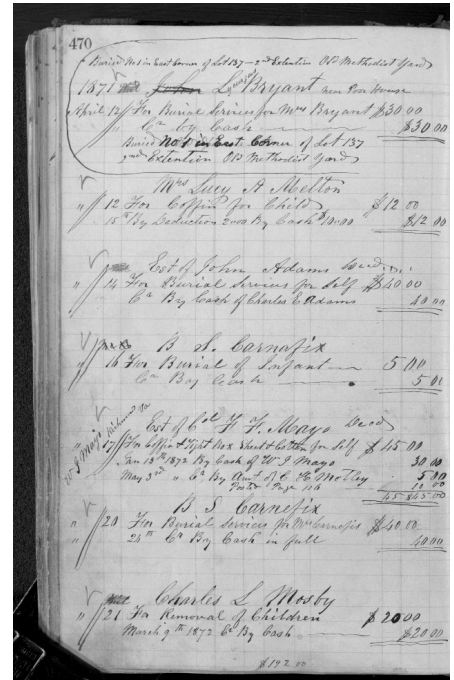 470
Buried No 1 in East Corner of Lot 137 - 2nd Extention Old Methodist Yard
1871 John L Bryant near Poor House
April 12 For Burial Services for Mrs Bryant $30 00
" Cr by Cash $30 00
Buried No 1 in East Corner of Lot 137
2nd Extention Old Methodist Yard
Mrs Lucy A Melton
" 12 For Coffin for Child $12 00
15th By Deduction 200 By Cash 1000 $12 00
Est of John Adams Decd
" 14 For Burial Services for Self $40 00
Cr By Cash of Charles E Adams 40 00
B S. Carnefix
" 16 For Burial of Infant 5 00
Cr By Cash 5 00
Est of Col F F. Mayo Decd
W J Mayo Richmond Va
" 17 For Coffin & Tight Box Sheet & Cotton for Self $45 00
Jan 13th 1872 By Cash of W J Mayo 30 00
May 3rd " Cr By Amt of C Motley 5 00
Posted Page 10 00
45 $45 00
B S. Carnefix
" 20 For Burial Services for Mrs Carnefix $40 00
24th Cr By Cash in full 40 00
Charles L Mosby
" 21 For Removal of Children $20 00
March 9th 1872 Cr By Cash $20 00
$192 00